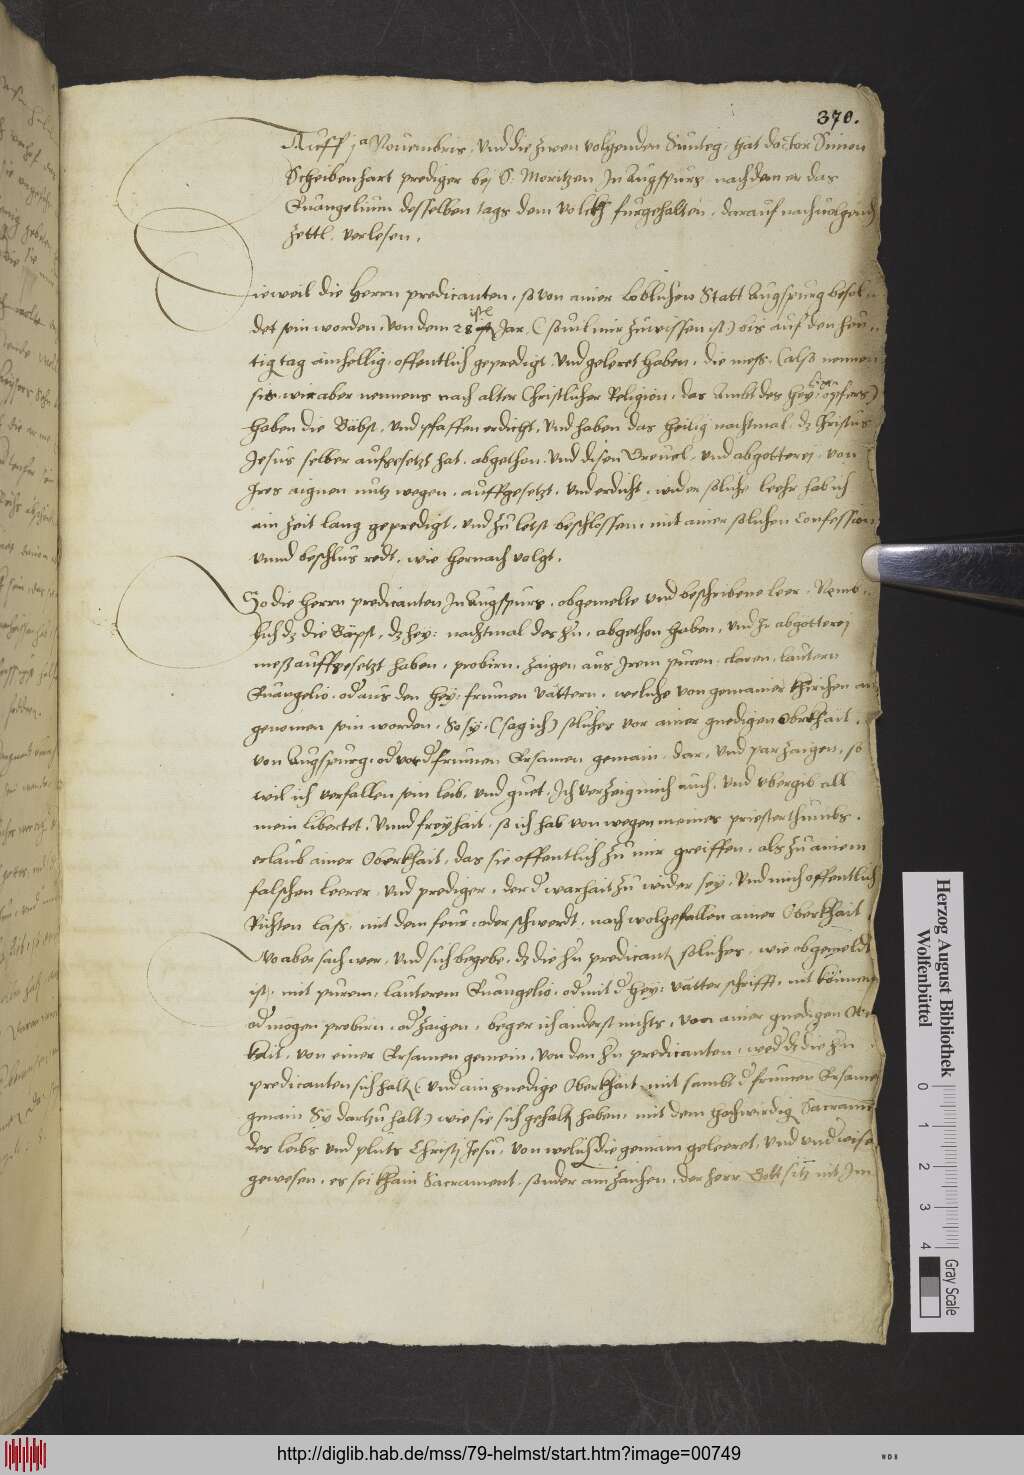 370.
Auff 1a Nouembris, vnd die zwen volgenden Suntag, hat doctor Simon
Scheibenhart prediger bej S: Moritzen In Augspurg nachdem er das
Euangelium desselben tags dem volckh furgehalten, darauf nachuolgend
zettl, verlesen.
Dieweil die herrn predicanten, so von ainer loblichen Statt Augspurg besol
det sein worden, von dem 28 ist Jar, (souil mir zuwissen ist) bis auf den heu
tig tag ainhellig, offentlich gepredigt vnd geleret haben, die mess, (also nennen
sis wir aber nennens nach alter Christlicher Religion, das Ambt des hey: opfers)
haben die Bäbst, vnd pfaffen erdicht, vnd haben das heilig nachtmal, dz Christus
Jesus selber aufgesetzt hat, abgethon, vnd disen Greuel, vnd abgotterej, von
Ires aignen nutz wegen, auffgesetzt, vnd erdicht, wider solche leehr hab ich
ain zeit lang gepredigt, vnd zu letst beschlossen, mit ainer solichen Confession
vnnd beschlus redt, wie hernach volgt.
So die herrn predicanten In Augspurg, obgemelte vnd beschribene leer, Nemb
lich dz die Bäpst, dz hey: nachtmal des hn, abgethon haben, vnd zu abgotterej
mess auffgesetzt haben, probirn, zaigen aus Irem puren, claren, lautern
Euangelio, od aus den hey: frumen vättern, welche von gemainer khirchen an
genomen sein worden, So sy, (sag ich) soliches vor ainer gnedigen Obrkhait,
von Augspurg, od vor d frumen Ersamen gemain, dar, vnd par zaigen, so
wil ich verfallen sein leib, vnd guet, Ich verzeig mich auch, vnd vbergib all
mein libertet, vnnd freyhait, so ich hab von wegen meines priesterthumbs,
erlaub ainer Oberkhait, das sie offentlich zu mir greiffen, als zu ainem
falschen leerer, vnd prediger, der d warhait zu wider sey, vnd mich offentlich
Richten lass, mit dem feur, oder schwerdt, nach wolgefallen ainer Oberkhait
Wo aber sach wer, vnd sich begebe, dz die hn predicant soliches, wie obgemeldt
ist, mit purem, lauterem Euangelio, od mit d hey: vätter schrifft, nit können
od mögen probirn, od zaigen, beger ich anderst nichts, von ainer gnedigen Ober
khait, von einer Ersamen gemein, von den hn predicanten, wed dz die hn
predicanten sich halt (vnd ain gnedige Oberkhait mit sambt d frumen Ersame
gemain Sy dartzu halt) wie sie sich gehalt haben, mit dem hochwirdig Sacrament
des leibs vnd pluts Christj Jesu, von welich die gemain geleeret, vnd vnd weise
gewesen, es sei khain Sacrament, sonder ain zaichen, der herr Gott sitz nit Im
Herzog August Bibliothek
Wolfenbüttel
0 1 2 3 4
Gray Scale
http://diglib.hab.de/mss/79-helmst/start.htm?image=00749